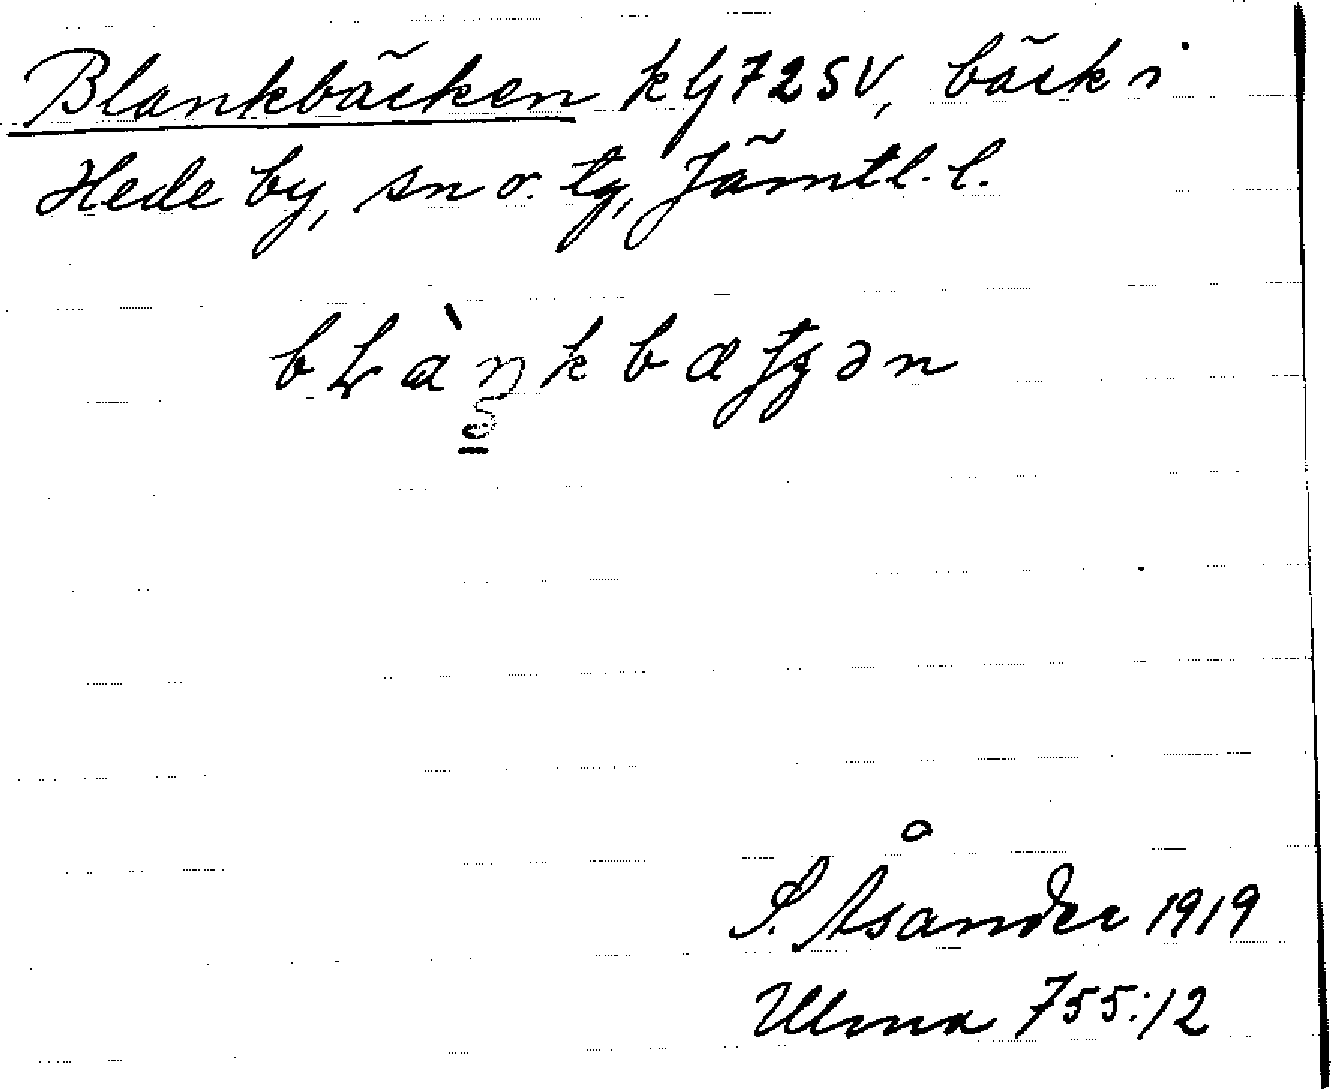 Blankbäcken kG72SV, bäck i
Hede by, sn o. tg, Jämtl. l.
S. Åsander 1919
Ulma 755:12